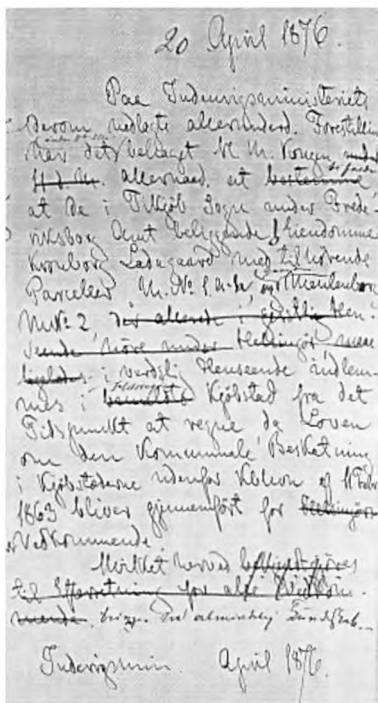 20 April 1876.
Paa Indenrigsministeriets
derom nedlagte allerunderd. Forestilling
har det behaget H. M. Kongen, under
allernaad. at bestemme
at de i Tikjøb Sogn under Frede-
riksborg Amt beliggende Eiendomme
Kronborg Ladegaard med tilhørende
Parceller M. No 1 og Marienborg
M No 2, der allerede i gejstlig Hen-
seende høre under Helsingør
i verdslig Henseende indlem-
mes i bemeldte Kjøbstad fra det
Tidspunkt at regne da Loven
om den Kommunale Beskatning
i Kjøbstæderne udenfor Kbhvn af 11 Febr
1863 bliver gjennemført for Helsingørs
Vedkommende.
Hvilket herved bekjendtgjøres
til Efterretning for alle Vedkom-
mende. bringes til almindelig Kundskab.
Indenrigsmin. April 1876.